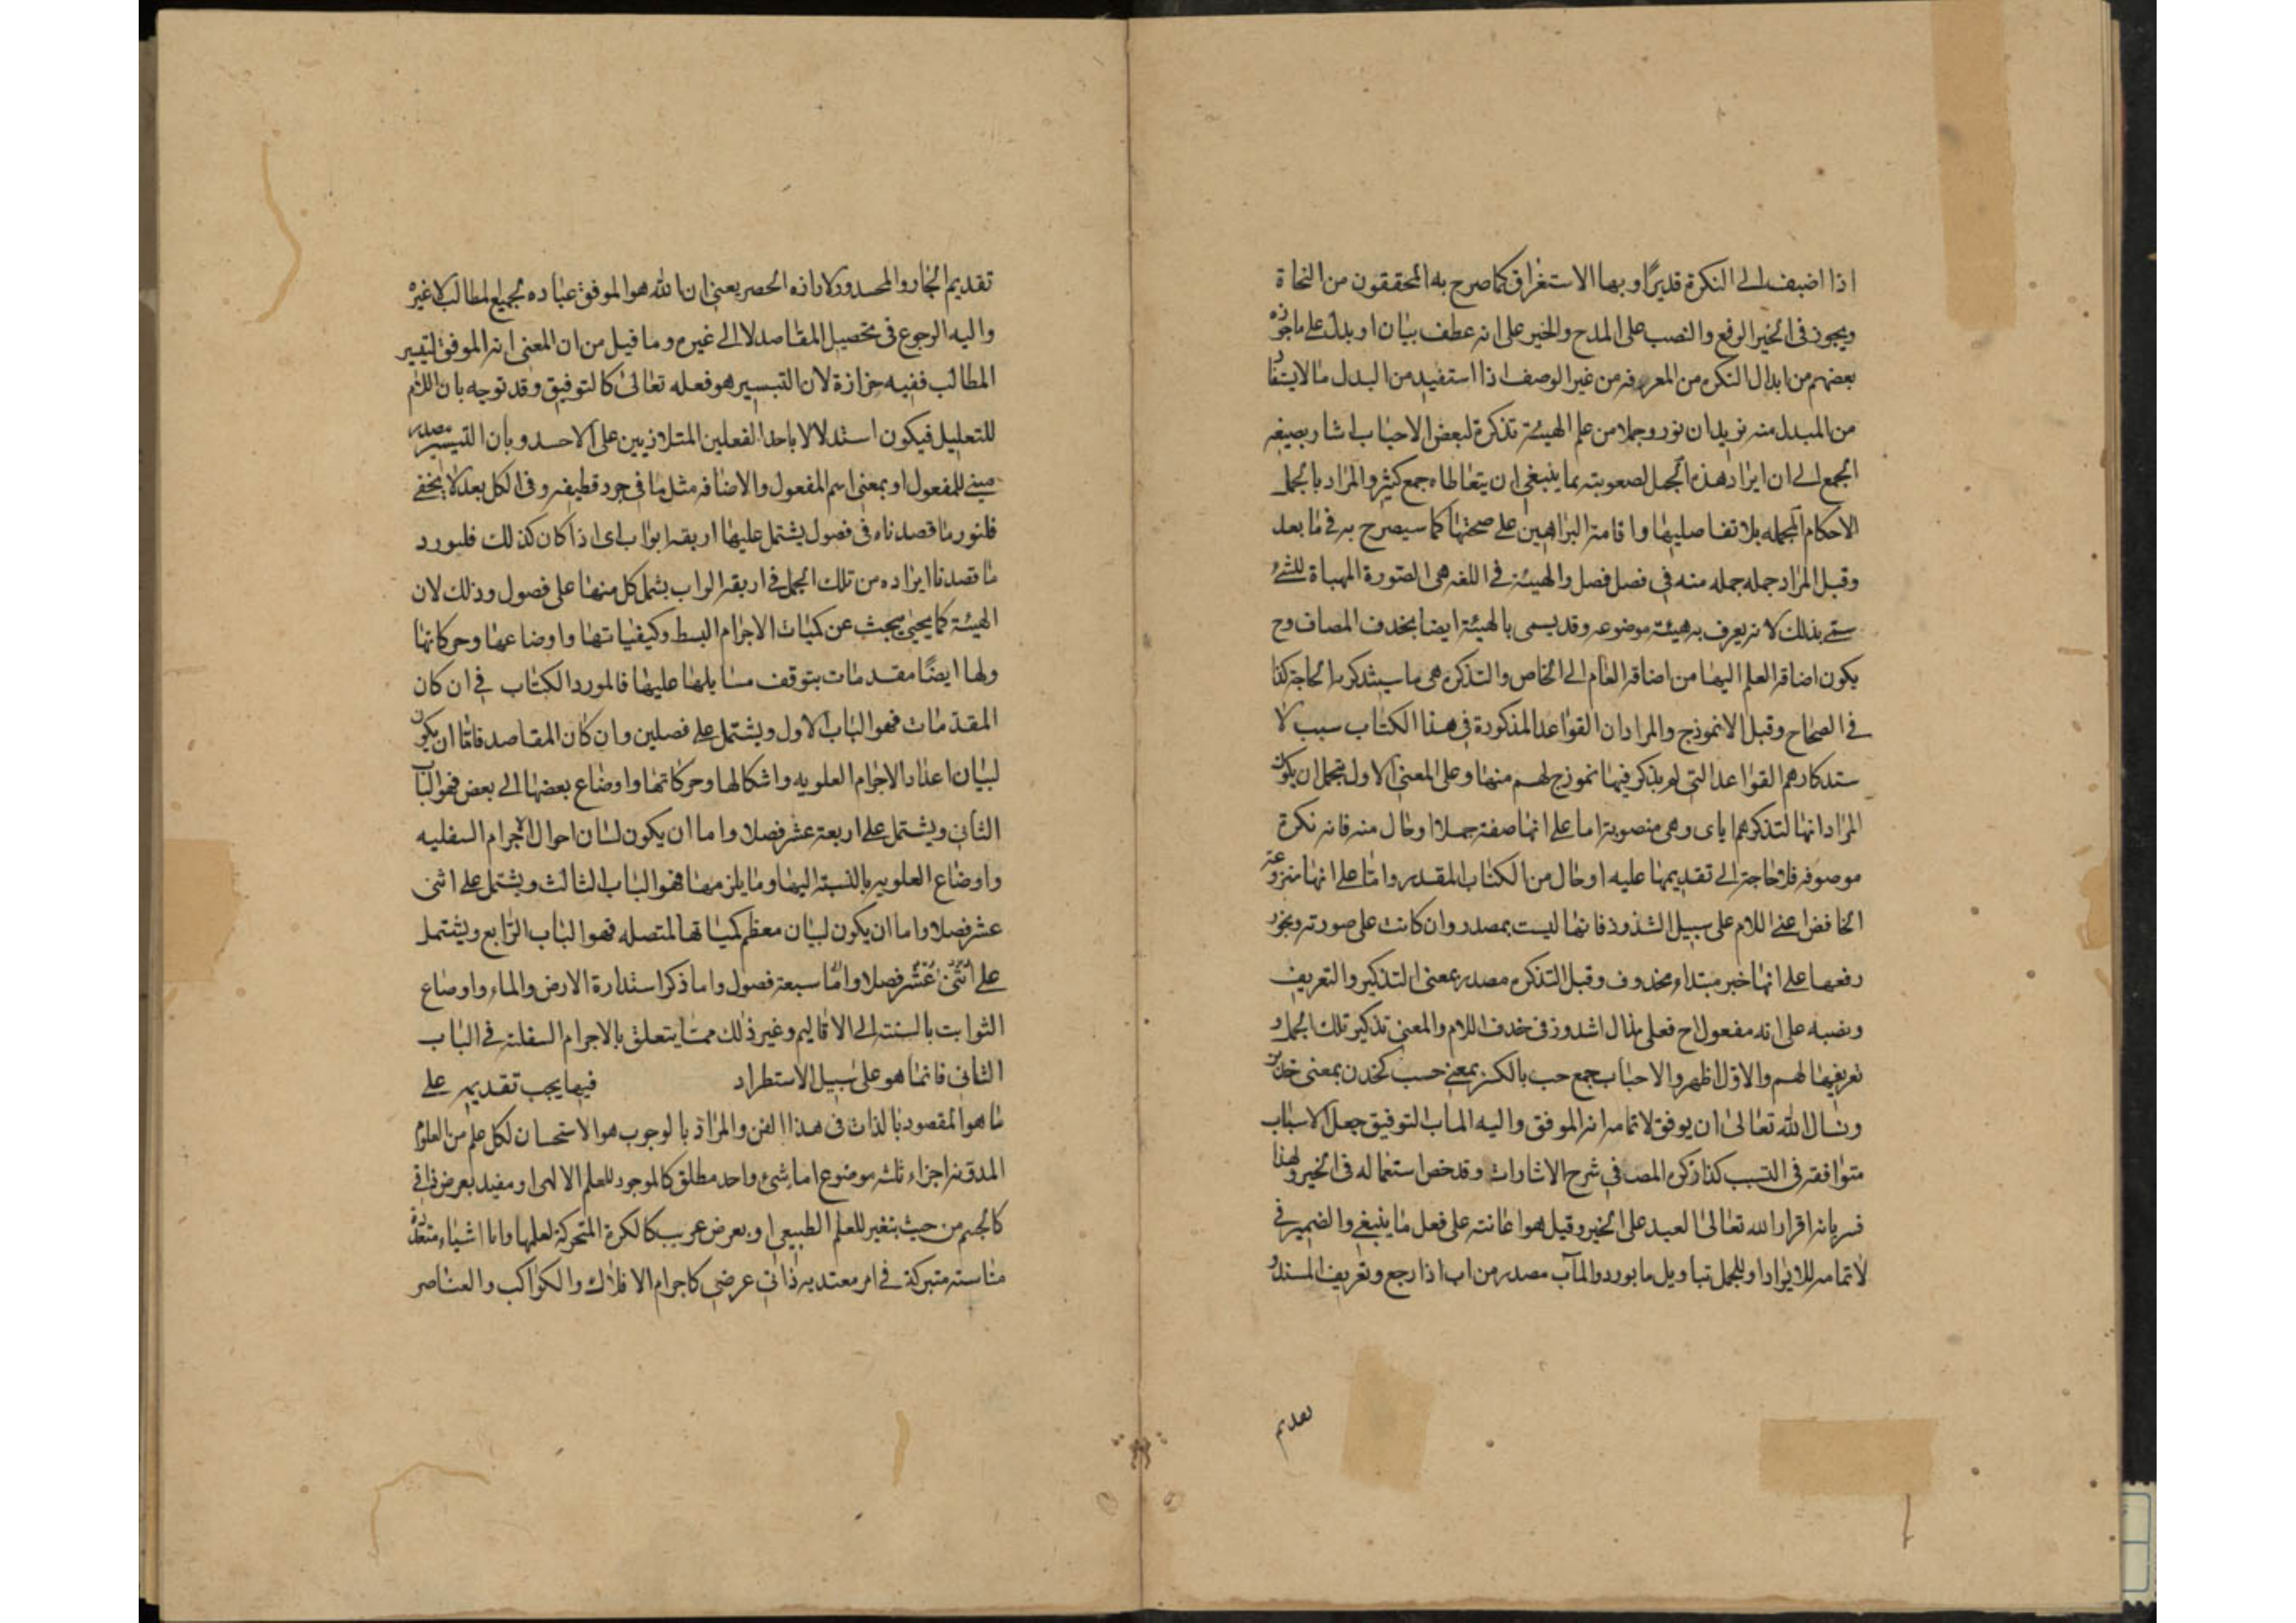 اذا اضيف الى النكرة قديرًا وبها الاستغراق كما صرح به المحققون من النحاة
ويجوز فى الخير الرفع والنصب على المدح والخير على انه عطف بيان او بدل على ما جوزه
بعضهم من ابدال النكره من المعرفه من غير الوصف اذا استفيد من البدل ما لا يستفاد
من المبدل منه نريد ان نورد جملا من علم الهيئة تذكرة لبعض الاحباب اشار بصيغه
الجمع الى ان ايراد هذه الجمل لصعوبته مما ينبغى ان يتعاطاه جمع كثير والمراد بالجمل
الاحكام المجمله بلا تفاصيلها واقامة البراهين على صحتها كما سيصرح به فى ما بعد
وقيل المراد جمله جمله منه فى فصل فصل والهيئة فى اللغه هى الصورة المهياة للشئ
سمى بذلك لانه يعرف به هيئة موضوعه وقد يسمى بالهيئة ايضا بحذف المضاف وح
يكون اضافة العلم اليها من اضافة العام الى الخاص والتذكره هى ما يستذكر به الحاجة كذا
فى الصحاح وقيل الانموذج والمراد ان القواعد المذكورة فى هذا الكتاب سبب لا
ستذكارهم القواعد التى لم يذكر فيها انموذج لهم منها وعلى المعنى الاول يحتمل ان يكون
المراد انها لتذكرهم اياى وهى منصوبة اما على انها صفة جملا او حال منه فانه نكرة
موصوفه فلا حاجة الى تقديمها عليه او حال من الكتاب المقدر واما على انها منزوعة
الخافض اعنى اللام على سبيل الشذوذ فانها ليست بمصدر وان كانت على صورته ويجوز
رفعها على انها خبر مبتداء محذوف وقيل التذكره مصدر بمعنى التذكير والتعريف
ونصبه على انه مفعول اح فعلى هذا لا شذوذ فى حذف اللام والمعنى تذكير تلك الجمل و
تعريفها لهم والاول اظهر والاحباب جمع حب بالكسر بمعنى حبيب كخدن بمعنى خدين
ونسال الله تعالى ان يوفق لاتمامه انه الموفق واليه الماب التوفيق جعل الاسباب
متوافقه فى التسبب كذا ذكره المصـ فى شرح الاشارات وقد خص استعماله فى الخير ولهذا
فسر بانه اقرار الله تعالى العبد على الخير وقيل هو اعانته على فعل ما ينبغى والضمير فى
لاتمامه للايراد او للجمل بتاويل ما يورد والمآب مصدر من اب اذا رجع وتعريف المسند و
تقديم
تقديم الجار والمجرور لافاده الحصر يعنى ان الله هو الموفق عباده لجميع المطالب لا غيره
واليه الرجوع فى تحصيل المقاصد لا الى غيره وما قيل من ان المعنى انه الموفق لتيسير
المطالب ففيه حزازة لان التيسير هو فعله تعالى كالتوفيق وقد توجه بان اللام
للتعليل فيكون استدلالا باحد الفعلين المتلازمين على الاخر وبان التيسير مصدر
مبنى للمفعول او بمعنى اسم المفعول والاضافه مثل ما فى جرد قطيفه وفى الكل بعد لا يخفى
فلنورد ما قصدناه فى فصول يشتمل عليها اربعة ابواب اى اذا كان كذلك فلنورد
ما قصدنا ايراده من تلك الجمل فى اربعة ابواب يشمل كل منها على فصول وذلك لان
الهيئة كما يجئ يبحث عن كميات الاجرام البسط وكيفياتها واوضاعها وحركاتها
ولها ايضًا مقدمات يتوقف مسايلها عليها فالمورد الكتاب فى ان كان
المقدمات فهو الباب الاول ويشتمل على فصلين وان كان المقاصد فاما ان يكون
لبيان اعداد الاجرام العلويه واشكالها وحركاتها واوضاع بعضها الى بعض فهو الباب
الثانى ويشتمل على اربعة عشر فصلا واما ان يكون لبيان احوال الاجرام السفليه
واوضاع العلويه بالنسبة اليها وما يلزمها فهو الباب الثالث ويشتمل على اثنى
عشر فصلا واما ان يكون لبيان معظم كمياتها المتصله فهو الباب الرابع ويشتمل
على اثنى عشر فصلا واما سبعة فصول واما ذكر استدارة الارض والماء واوضاع
الثوابت بالنسبة الى الاقاليم وغير ذلك مما يتعلق بالاجرام السفلية فى الباب
الثانى فانما هو على سبيل الاستطراد فيما يجب تقديمه على
ما هو المقصود بالذات فى هذا الفن والمراد بالوجوب هو الاستحسان لكل علم من العلوم
المدونه اجزاء ثلثه موضوع اما شئ واحد مطلق كالموجود للعلم الالهى او مقيد بعرض ذاتى
كالجسم من حيث يتغير للعلم الطبيعى او بعرض غريب كالكرة المتحركة لعلمها واما اشياء متعددة
متناسبة متشركة فى امر معتد به ذاتى او عرضى كاجرام الافلاك والكواكب والعناصر